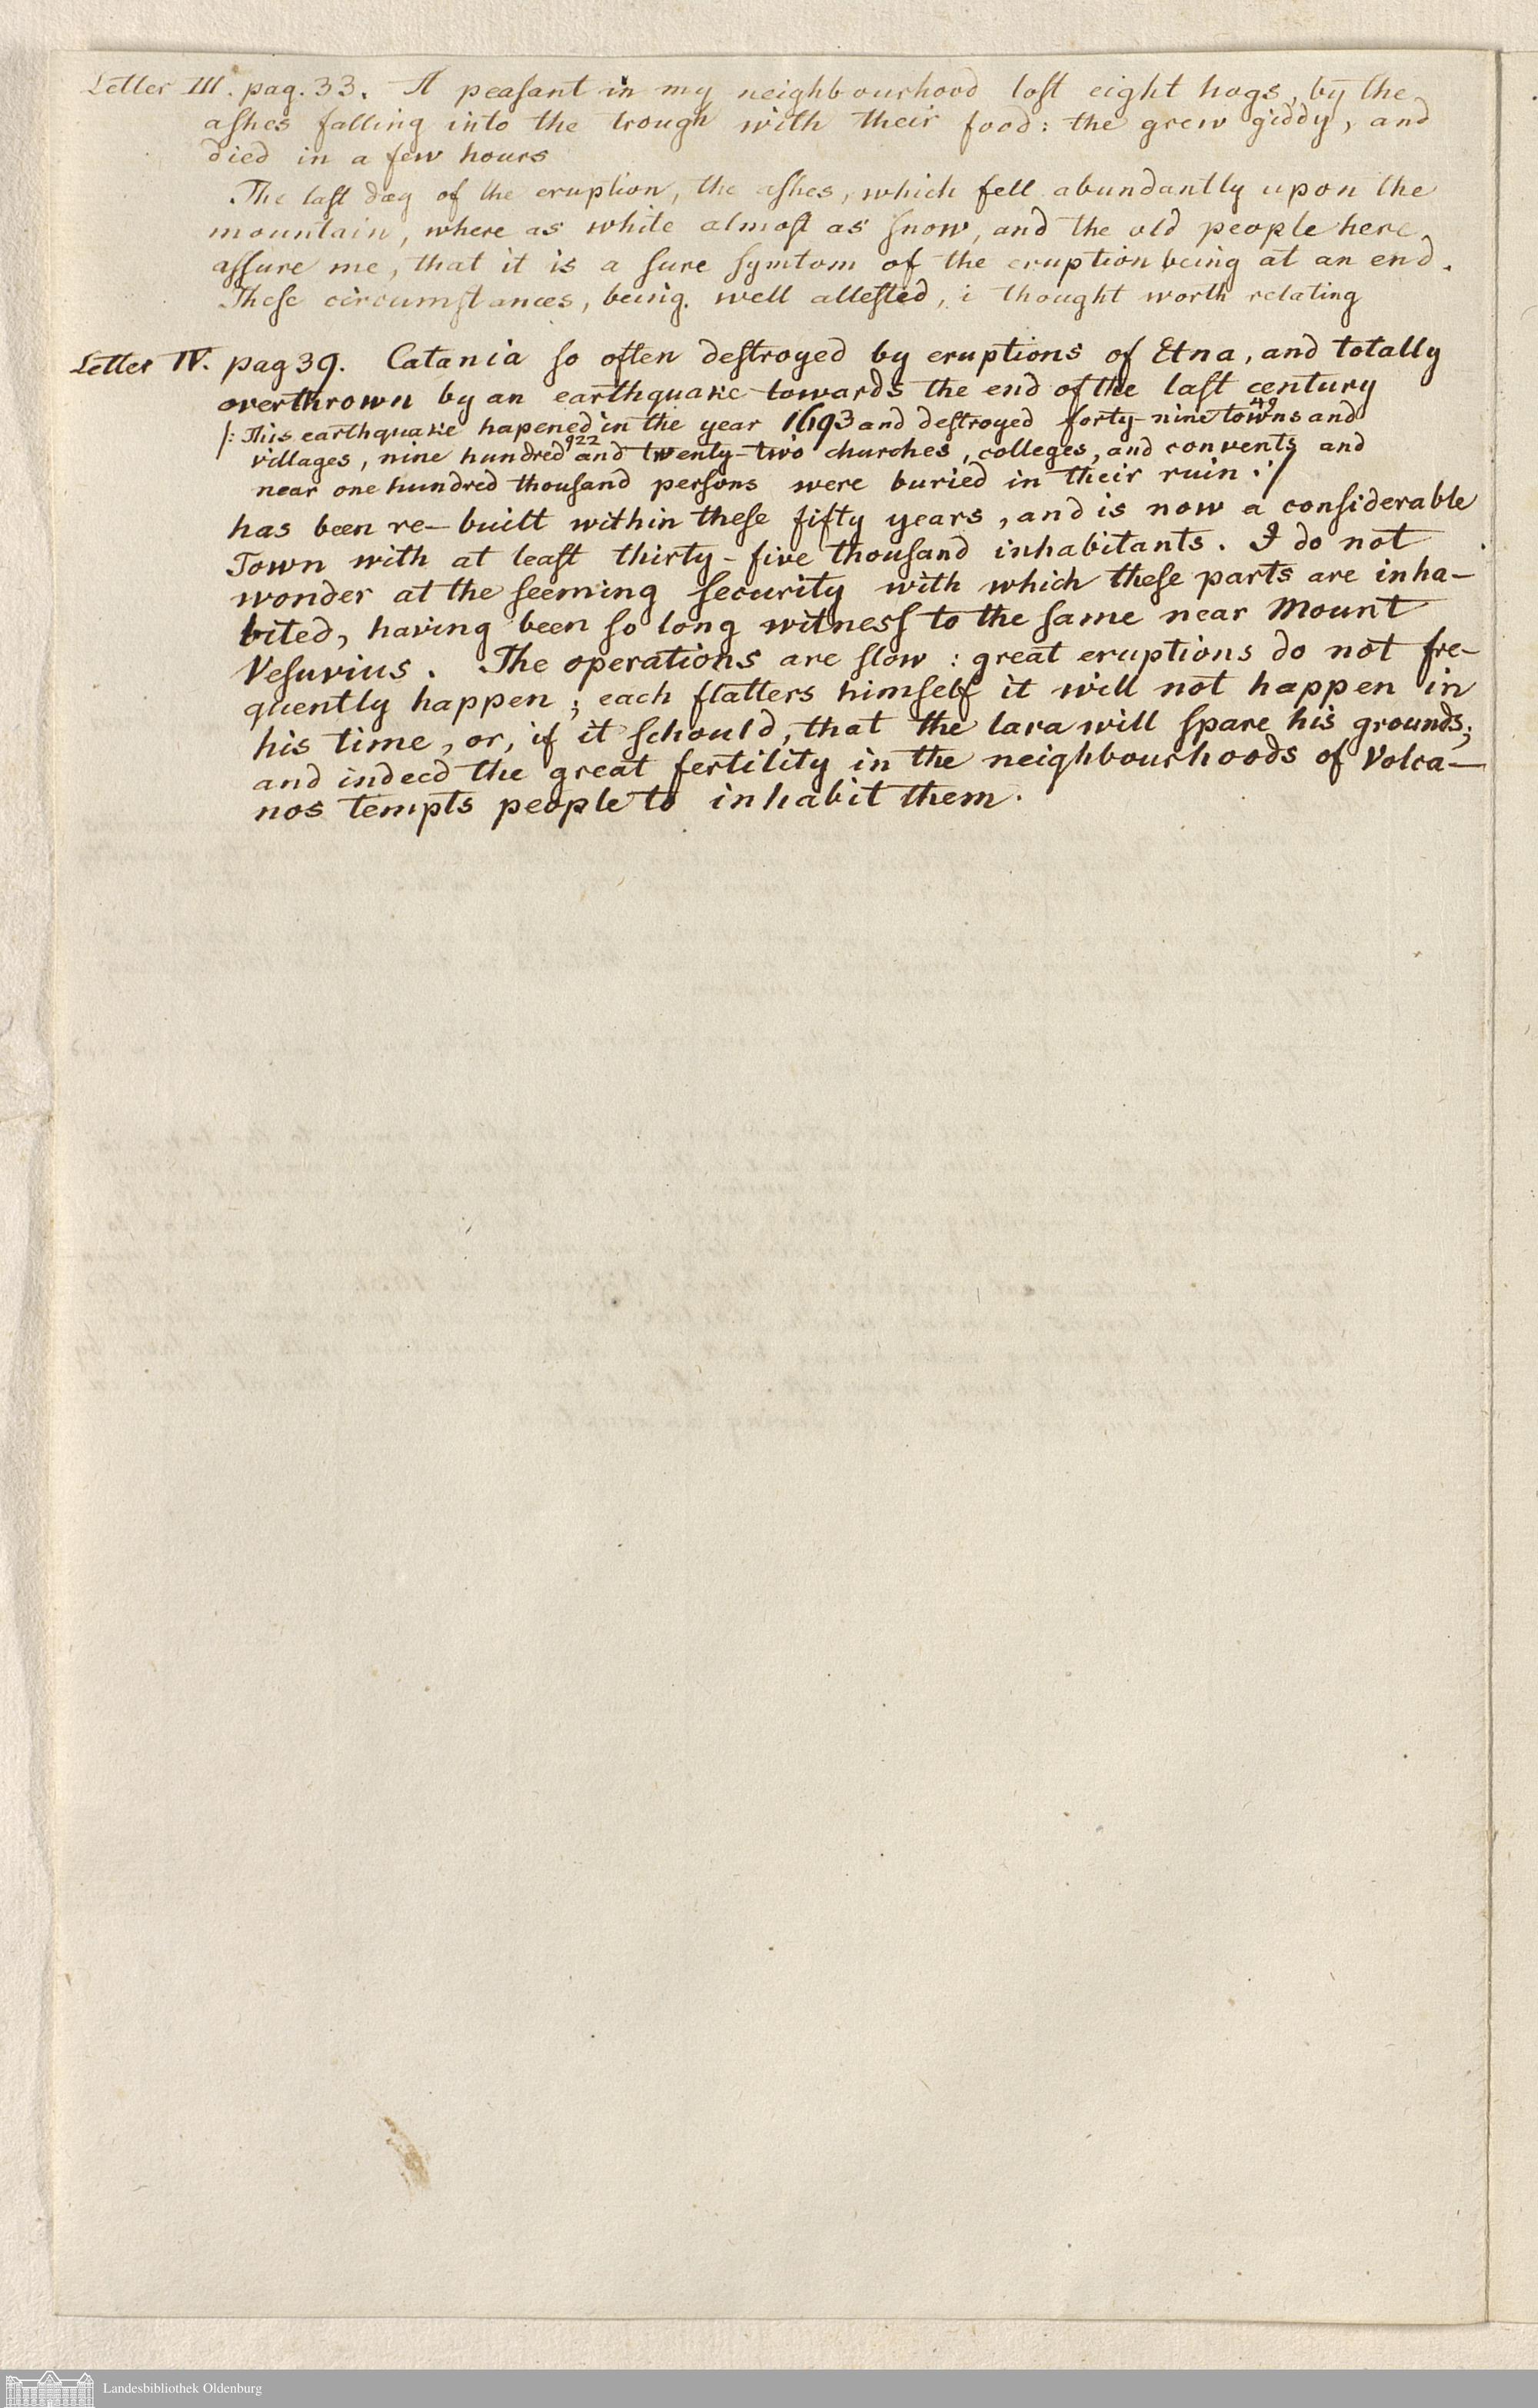 Letter III. pag. 33. A peaſant in my neighbourhood loſt eight hogs, by the
aſhes falling into the trough with their food: the grew giddy, and
died in a few hours
The laſt day of the eruption, the aſhes, which fell abundantly upon the
mountain, where as white almoſt as ſnow, and the old people here
aſſure me, that it is a ſure ſymtom of the eruption being at an end.
Theſe circumſtances, being. well atteſted, i thought worth relating
Letter IV. pag 39. Catania ſo often deſtroyed by eruptions of Etna, and totally
overthrown by an earthquake towards the end of the laſt century
49
/: This earthquake hapened in the year 1693 and deſtroyed forty-nine towns and
922
villages, nine hundred and twenty-two churches, colleges, and convents and
near one hundred thouſand perſons were buried in their ruin :/
has been re-built within theſe fifty years, and is now a conſiderable
Town with at leaſt thirty-five thouſand inhabitants. I do not
wonder at the ſeeming ſecurity with which theſe parts are inha-
bited, having been ſo long witneſſ to the ſame near Mount
Veſuvius. The operations are ſlow: great eruptions do not fre-
quently happen; each flatters himſelf it will not happen in
his time, or, if it ſchould, that the lava will ſpare his grounds;
and indeed the great fertility in the neighbourhoods of Volca-
nos tempts people to inhabit them.
Landesbibliothek Oldenburg